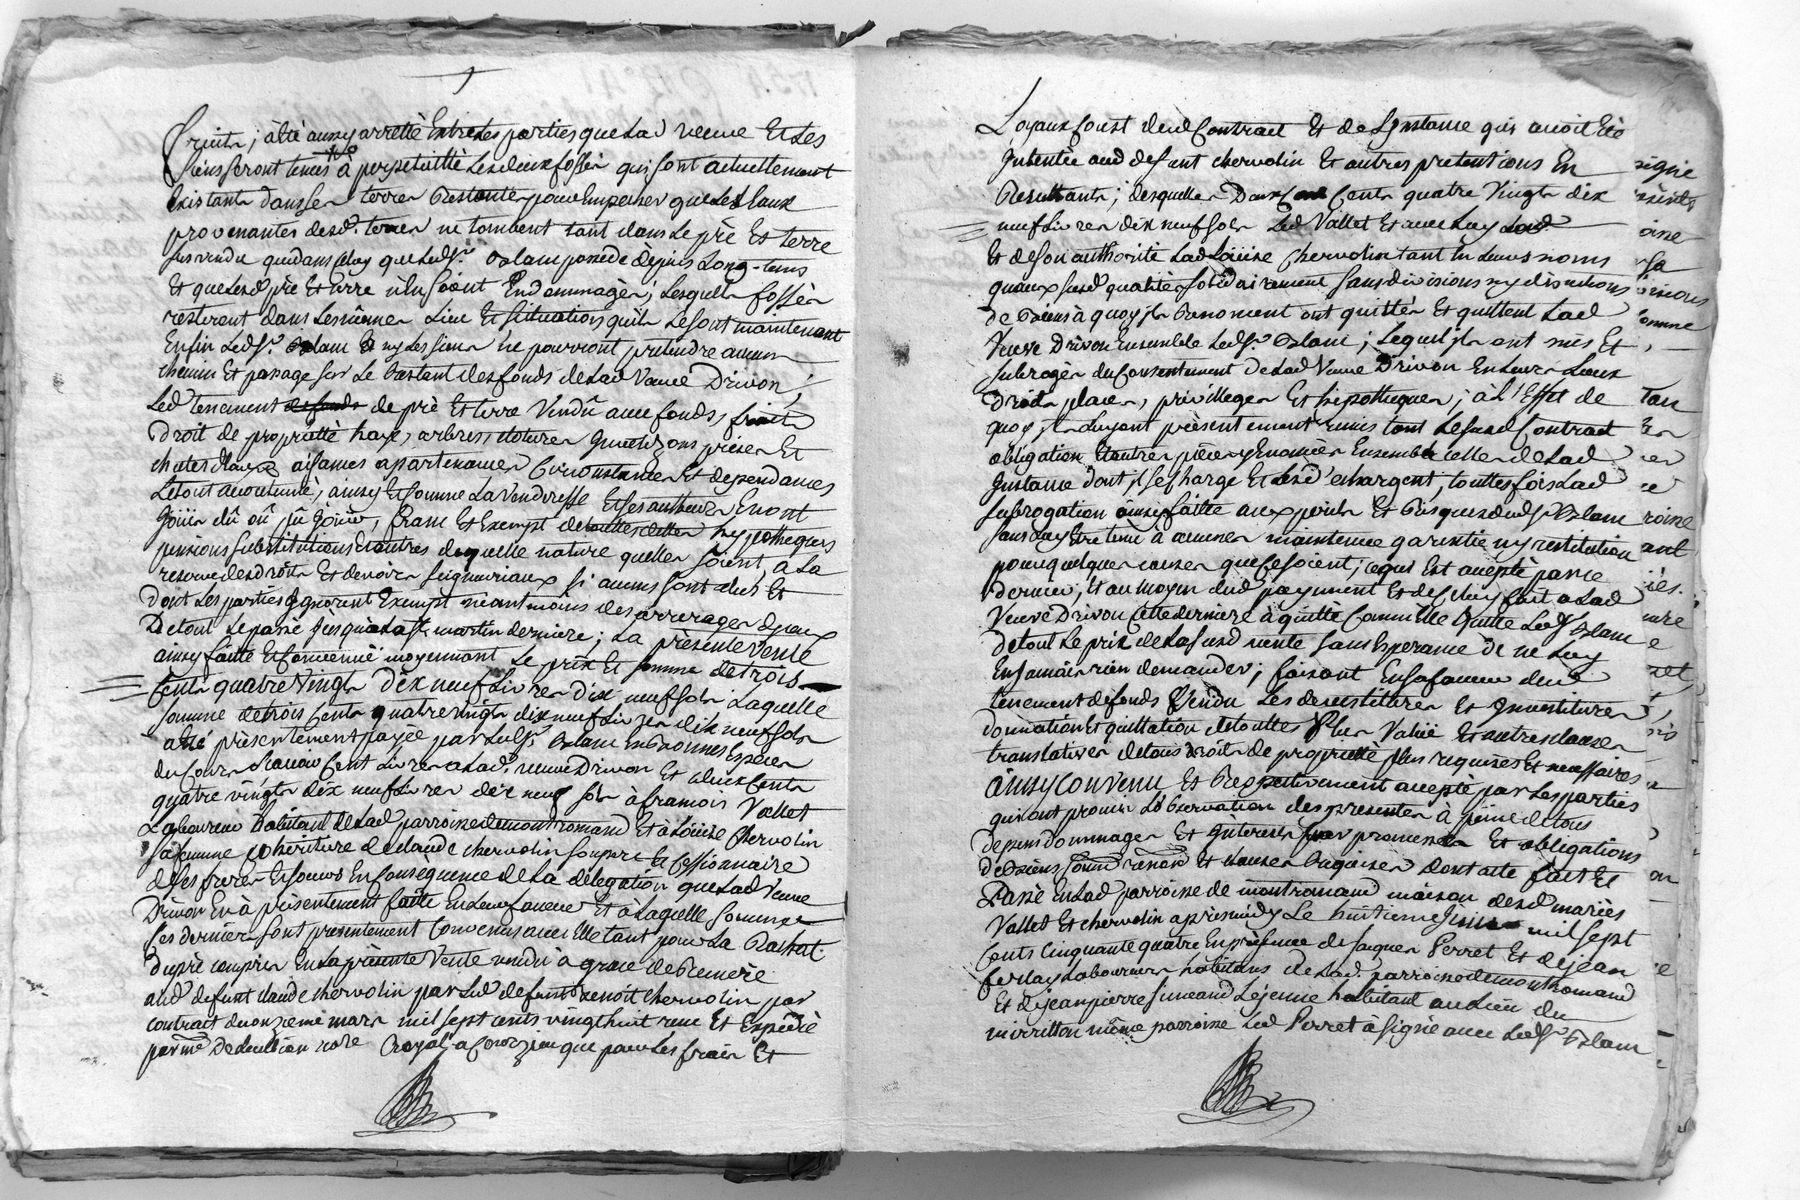 fruits; a été aussy arretté Entre Les parties que Lad veuve Et Les
siens seront tenus à perpetuitté Les deux fossés qui sont actuellement
Existants dans Les terres Restantes pour Empecher que Les Eaux
provenantes desd. terres ne tombent tant dans Le pré Et terre
sus vendu que dans celuy que Led Sr. possède depuis Long-tems
Et que Lesd pré Et terre n'En soient Endommagés; Lesquels fossés
resteront dans Les mêmes Lieu Et situations qu'ils Le sont maintenant
Enfin Led Sr. ny Les siens ne pourront pretendre aucun
chemin Et passage sur Le Restant des fonds de Lad Veuve Drivon;
Led tenement de pré Et terre Vendû avec fonds, fruits
droit de proprietté haye, arbres, clotures prises Et
aisances apartenances Circonstances Et dependances
Le tout accoutumé, ainsy Et comme La Venderesse Et ses autheurs En ont
joüis dû où pû joüir, franc Et Exempt de touttes dettes hypotheques
pensions substitutions Et autres de quelle nature quelles soient, a La
reserve des droits Et devoirs seigneuriaux si aucuns sont dus Et
dont Les parties Ignorent Exempt neantmoins des arrerages d'yceux
De tout Le passé jusqu'à La st. martin derniere; La presente Vente
ainsy faitte Et Convenuë moyennant Le prix Et somme de trois
Cents quatre Vingts dix neuf Livres dix neuf sols Laquelle
somme de trois Cents quatre vingts dix neuf Livres dix neuf sols
a été présentement payée par Led Sr. En Bonnes Especes
du Cours sçavoir Cent Livres a Lad. veuve Drivon Et deux Cents
quatre vingts dix neuf Livres dix neuf sols à francois Vallet
Laboureur habitant de Lad parroisse de montromand Et à Loüise Chervolin
sa femme cohéritiere de claude chervolin son pere Et Cessionnaire
de ses freres Et sœurs En conséquence de La délégation que Lad Veuve
Drivon En a présentement faitte En Leur faveur Et à Laquelle somme
Ces derniers sont presentement Convenus avec Elle tant pour La Rachat
du pré compris En La présente Vente vendu a grace de Remeré
aud defunt claude chervolin par Led defunt benoit chervolin par
contract du onzieme mars mil sept cents vingt huit recu Et Expedié
par me. Royal que pour Les frais Et
Loyaux Coust dud Contract Et de L'jnstance qui avoit été
jntentée aud defunt chervolin Et autres pretentions En
Resultants; desquelles Deux Cents quatre Vingts dix
neuf Livres dix neuf sols Led Vallet Et avec Luy Lad
Et de son authorité Lad Loüise Chervolin tant En Leurs noms
quaux susd qualités solidairement sans divisions ny discutions
de biens à quoy jls Renoncent ont quittés Et quittent Lad
Veuve Drivon Ensemble Led Sr. ; Lequel jls ont mis Et
subrogés du Consentement de Lad Veuve Drivon En Leurs Lieux
Droits places, privilleges Et hipotheques; à L'Effet de
quoy jls Luy ont présentement remis tant Le susd Contract
obligation Et autres pièces Enoncées Ensemble celles de Lad
jnstance dont jl se charge Et Lesd déchargent, touttes fois Lad
subrogation ainsy faitte aux perils Et Risques dud Sr
sans Luy Etre tenu à aucunes maintenue garentie ny restitution
pour quelques causes que ce soient, ce qui Est accepté par ce
dernier; Et au moyen dud payement Et de celuy fait a Lad
Veuve Drivon Cette derniere a quitté Comm'Elle quitte Led Sr
De tout Le prix de La susd vente sans Esperance de ne Luy
En jamais rien demander; faisant En sa faveur dud
tenement de fonds vendu Les devestitures Et jnvestitures
donnation Et quittation de touttes plus Value Et autres clauses
translatives de tous droits de proprietté plus requises Et necessaires
ainsy Convenu Et Respectivement accepté par Les parties
qui ont promis L'observation des presentes à peine de tous
depens dommages Et jnterests promesses Et obligations
de Biens soumd renond Et clauses Requises Dont acte fait Et
Passé En Lad parroisse de montromand maison desd mariés
Vallet Et chervolin apres midy Le huitieme mil sept
Cents Cinquante quatre En présence de Jaques Perret Et de jean
ferlay Laboureurs habitans de Lad. parroisse de montromand
Et de jean pierre simeand Le jeune habitant au Lieu du
même parroisse Led Perret à signé avec Led Sr